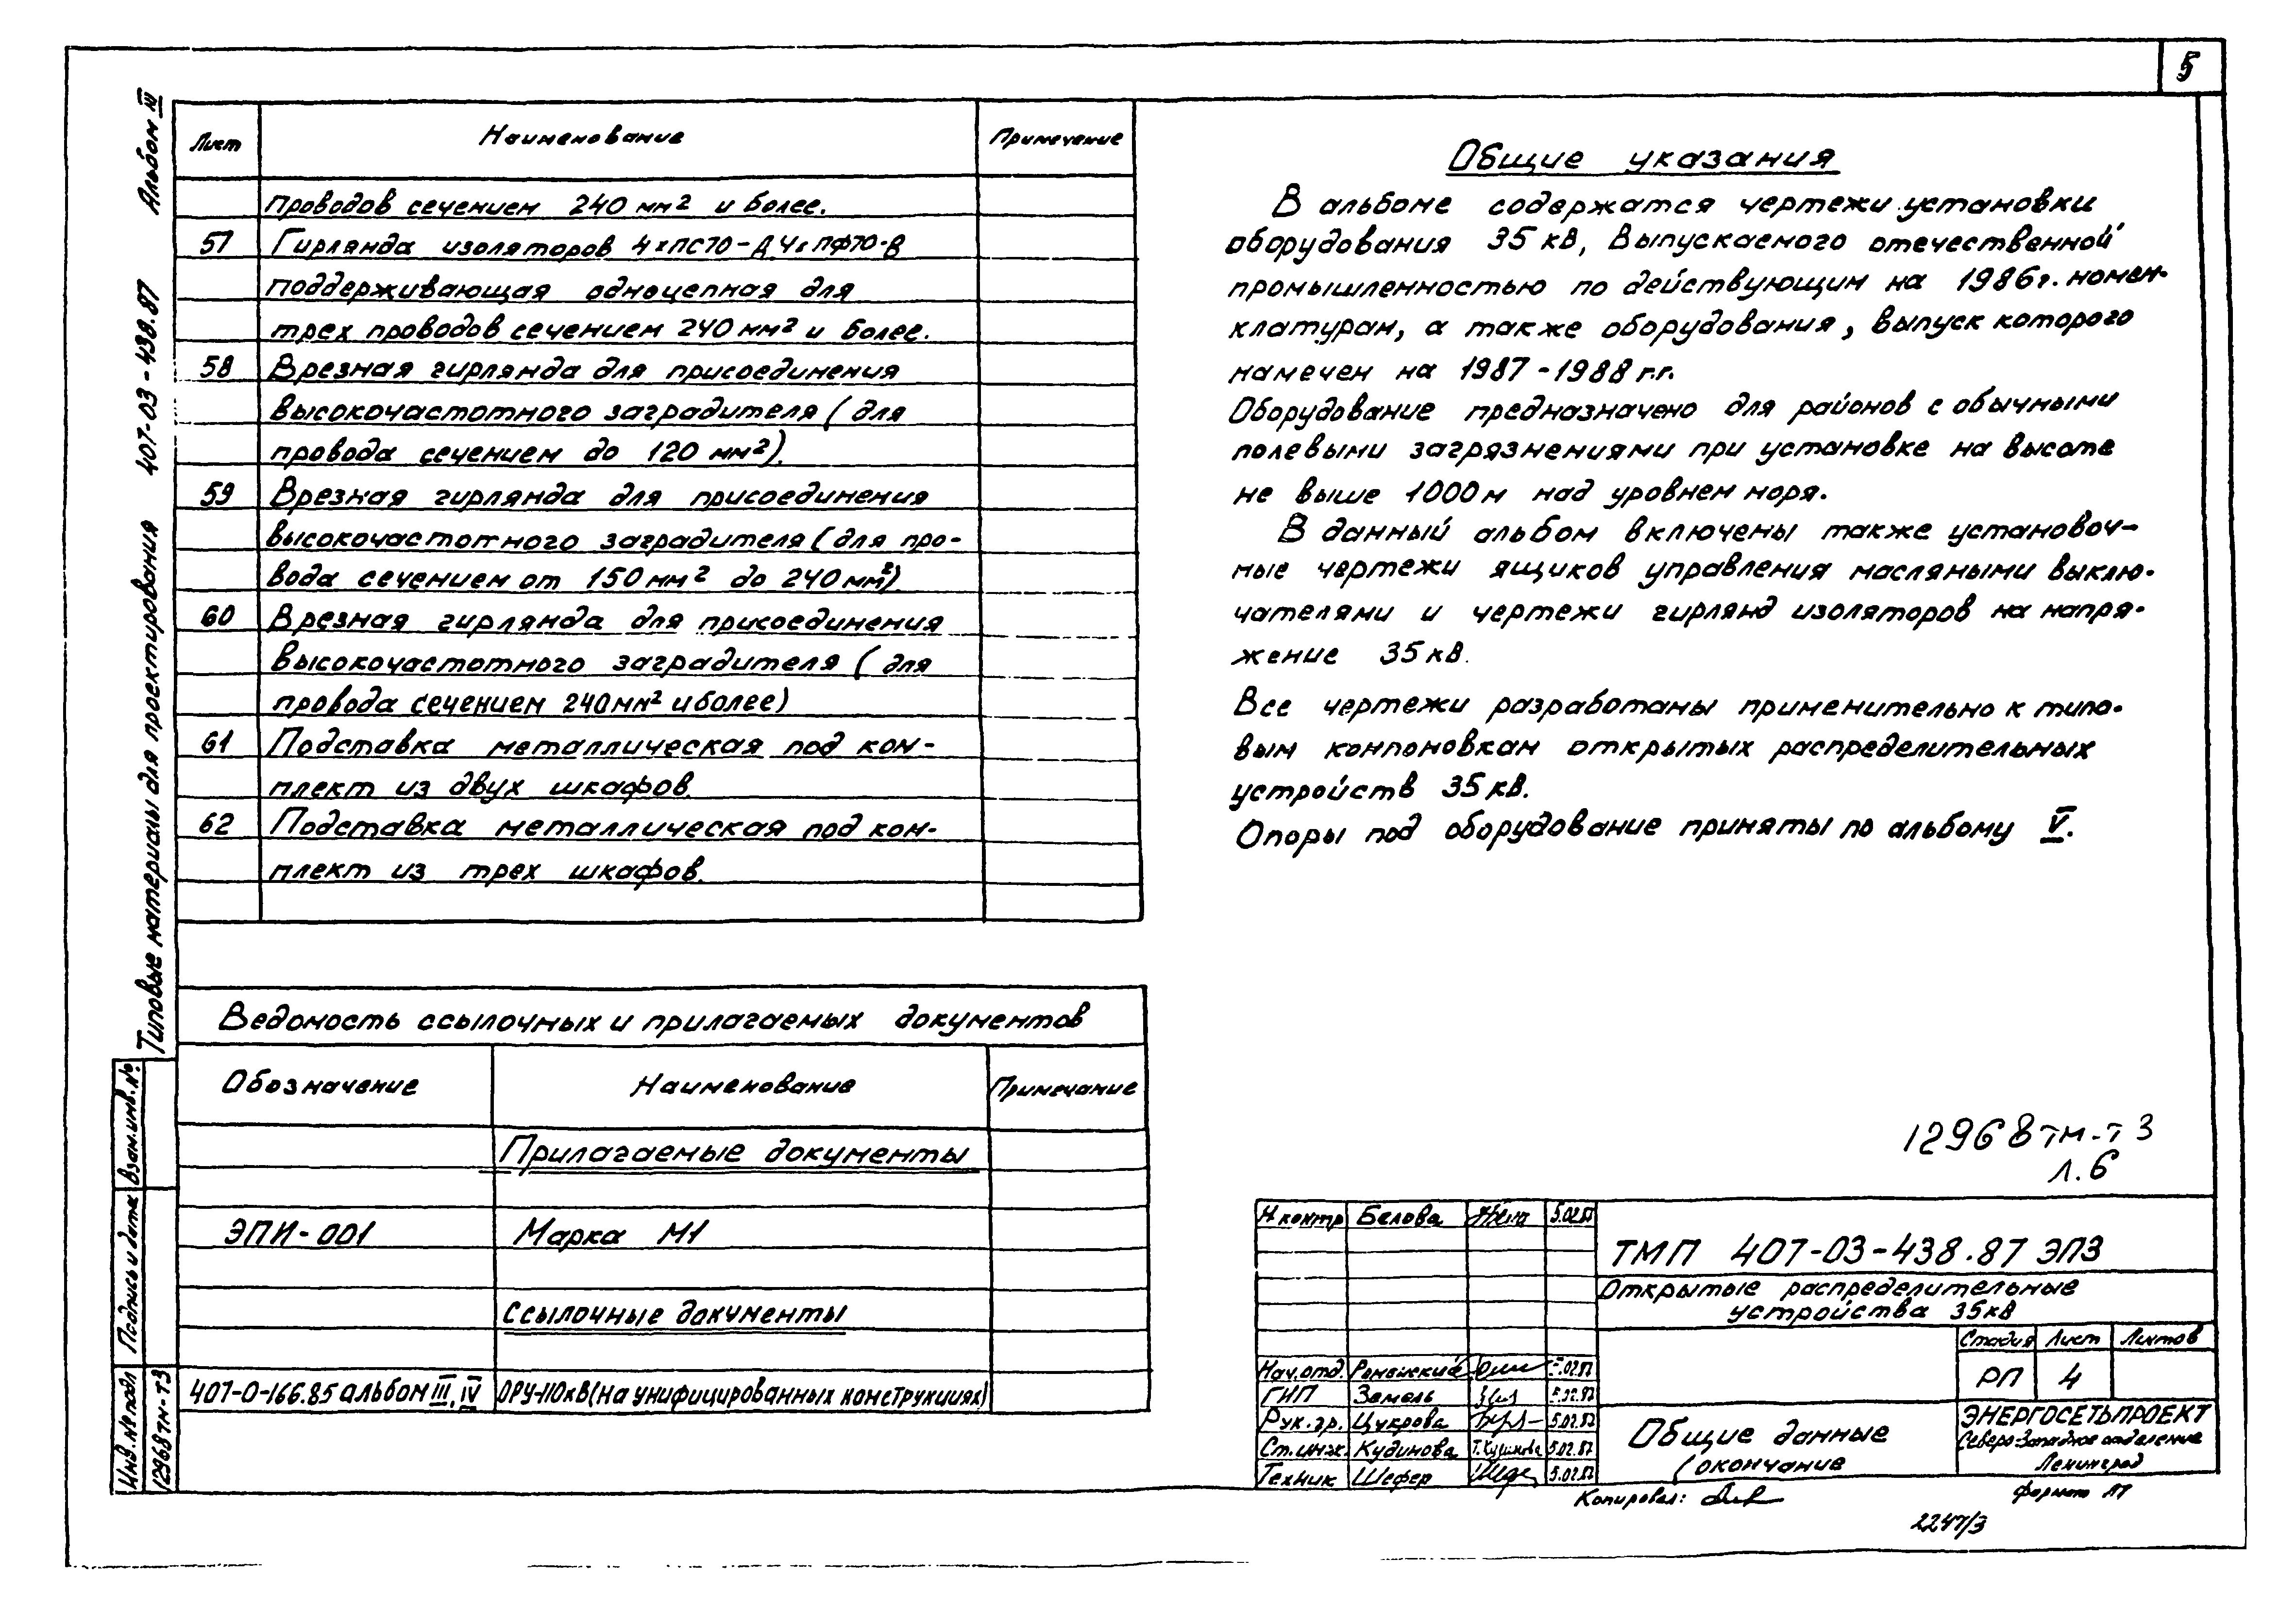 5
Типовые материалы для проектирования 407-03-438.87 Альбом III
Лист Наименование Примечание
проводов сечением 240 мм² и более.
57 Гирлянда изоляторов 4хПС70-Д, 4хПФ70-В
поддерживающая одноцепная для
трех проводов сечением 240 мм² и более.
58 Врезная гирлянда для присоединения
высокочастотного заградителя (для
провода сечением до 120 мм²).
59 Врезная гирлянда для присоединения
высокочастотного заградителя (для про-
вода сечением от 150 мм² до 240 мм²).
60 Врезная гирлянда для присоединения
высокочастотного заградителя (для
провода сечением 240 мм² и более)
61 Подставка металлическая под ком-
плект из двух шкафов.
62 Подставка металлическая под ком-
плект из трех шкафов.
Ведомость ссылочных и прилагаемых документов
Обозначение Наименование Примечание
Прилагаемые документы
ЭПИ-001 Марка М1
Ссылочные документы
407-0-166.85 альбом III, IV ОРУ-110кВ (на унифицированных конструкциях)
Общие указания
В альбоме содержатся чертежи установки
оборудования 35 кВ, выпускаемого отечественной
промышленностью по действующим на 1986г. номен-
клатурам, а также оборудования, выпуск которого
намечен на 1987-1988 г.г.
Оборудование предназначено для районов с обычными
полевыми загрязнениями при установке на высоте
не выше 1000 м над уровнем моря.
В данный альбом включены также установоч-
ные чертежи ящиков управления масляными выклю-
чателями и чертежи гирлянд изоляторов на напря-
жение 35 кВ.
Все чертежи разработаны применительно к типо-
вым компоновкам открытых распределительных
устройств 35 кВ.
Опоры под оборудование приняты по альбому V.
12968тм-т3
л.6
Н.контр Белова 5.02.87
ТМП 407-03-438.87 ЭП3
Открытые распределительные
устройства 35кВ
Стадия Лист Листов
РП 4
Нач.отд. Роменский 5.02.87
ГИП Земель 5.02.87
Рук.гр. Цукрова 5.02.87
Ст.инж. Кудинова Т.Кудинова 5.02.87
Техник Шефер 5.02.87
Общие данные
(окончание
ЭНЕРГОСЕТЬПРОЕКТ
Северо-Западное отделение
Ленинград
Копировал:
Формат
2247/3
Взам.инв.№
Подпись и дата
Инв.№ подл
12968тм-т3